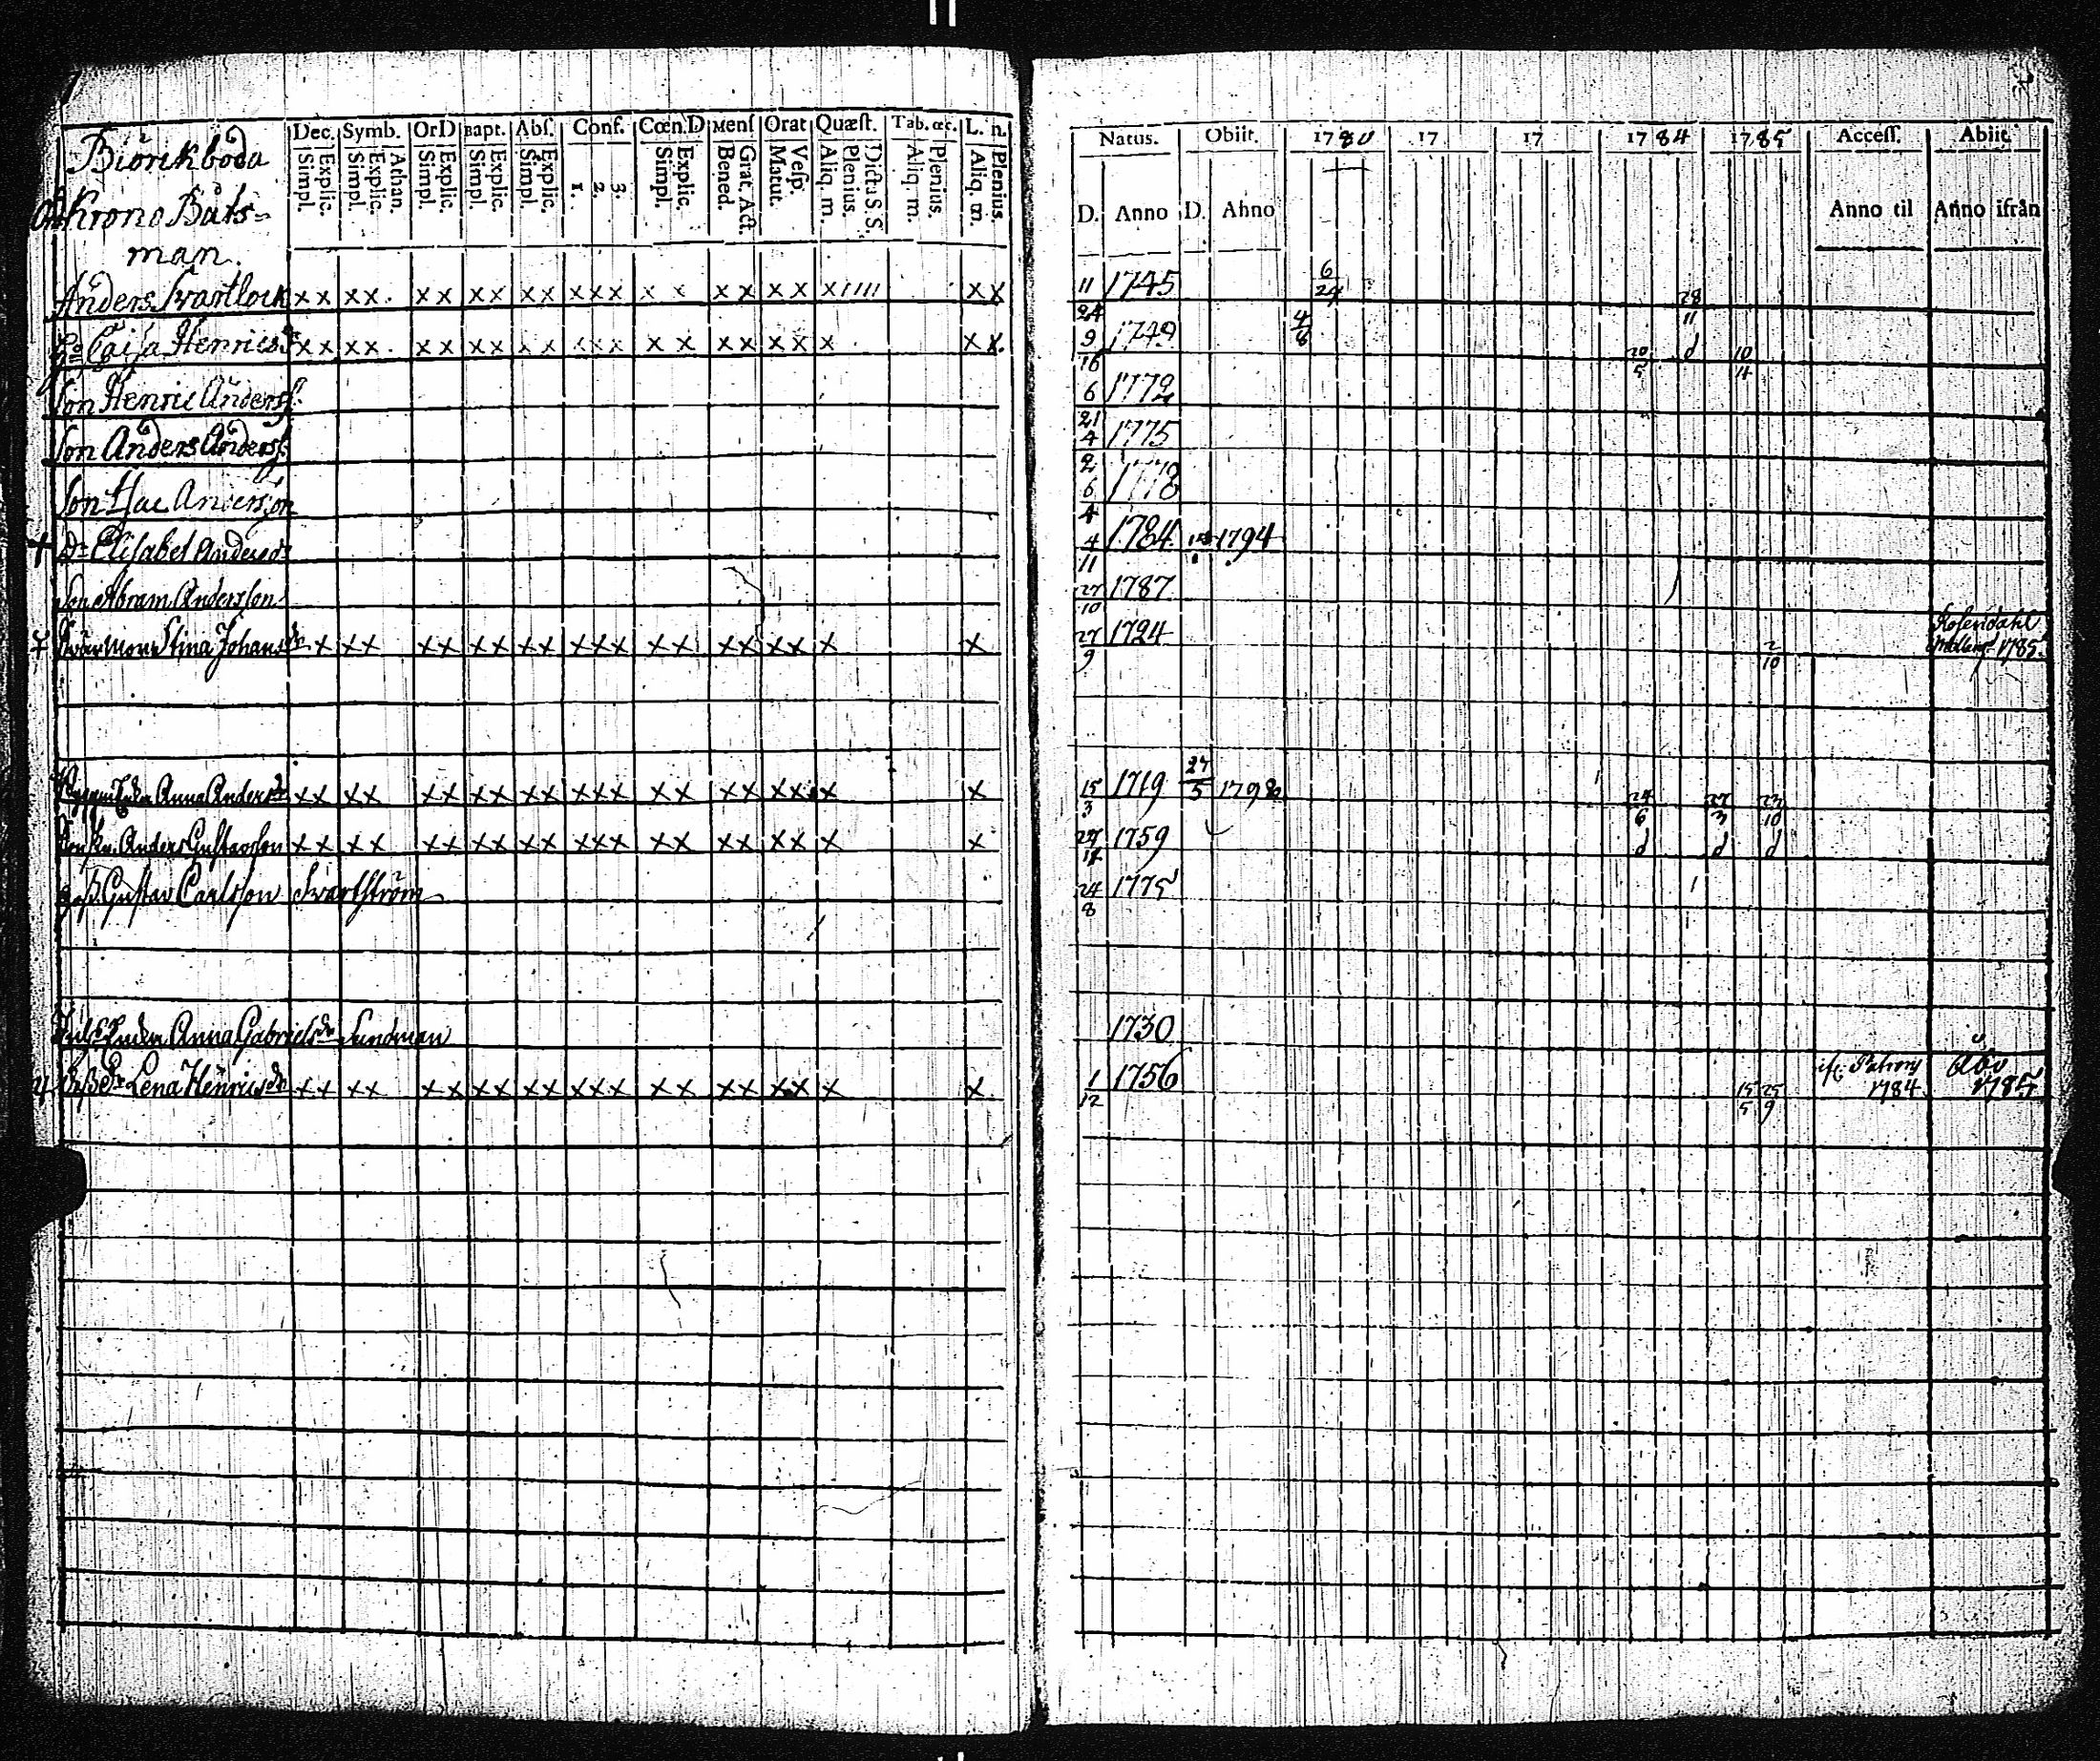 Dec. Symb. OrD Bapt. Abſ. Conf. Cœn.D Menſ Orat Quæſt. Tab. œc. L. n.
Simpl. Explic. Simpl. Explic. Athan. Simpl. Explic. Simpl. Explic. Simpl. Explic. 1. 2. 3. Simpl. Explic. Bened. Grat. Act. Matut. Veſp. Aliq. m. Plenius. Dicta S. S. Aliq. m. Plenius. Aliq. m. Plenius.
Natus. Obiit. 1780 17 17 1784 1785 Acceſſ. Abiit.
D. Anno D. Anno Anno til Anno ifrån
Biörckboda
Krono Båts=
man.
Anders Svartlock x x x x . x x x x x x x x x x x x x x x x x x x 11 1745 6 24 28 11
Caisa Henricsdr x x x x . x x x x x x x x x x x x x x x x x x x. 24 9 1749 4 6 20 5 d 10 4
Son Henric Andersſ. 16 6 1772
Son Anders Andersſ. 21 4 1775
Son Isac Andersson 2 6 1778
+ Dr Elisabet Andersdr 4 4 1784 1794
Son Abram Andersson 11 27 10 1787
Svärmor Stina Johansdr x x x x x x x x x x x x x x x x x x x x x 27 9 1724 2 10 Rosendahl 1785.
Anna Andersdr x x x x x x x x x x x x x x x x x x x x x x 15 3 1719 27 5 1798 24 6 27 3 23 10
Anders Gustavsson x x x x x x x x x x x x x x x x x x x x x 1759 d d d
Gustav Carlsson Svartström 24 8 1775
Anna Gabrielsdr Sundman 1730
Dr Lena Henricsdr x x x x x x x x x x x x x x x x x x x x x 1 12 1756 15 5 25 9 1784 Åbo 1785